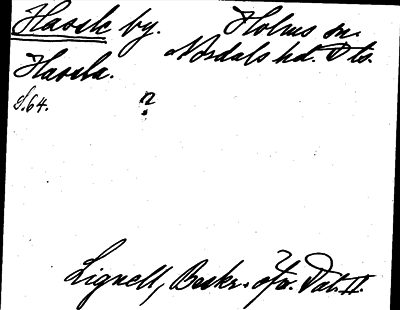 Hassle by. Holms sn.
Nordals hd. Ds.
Hassla.
S. 64. ?
Lignell, Beskr. öfv. Dal. II.